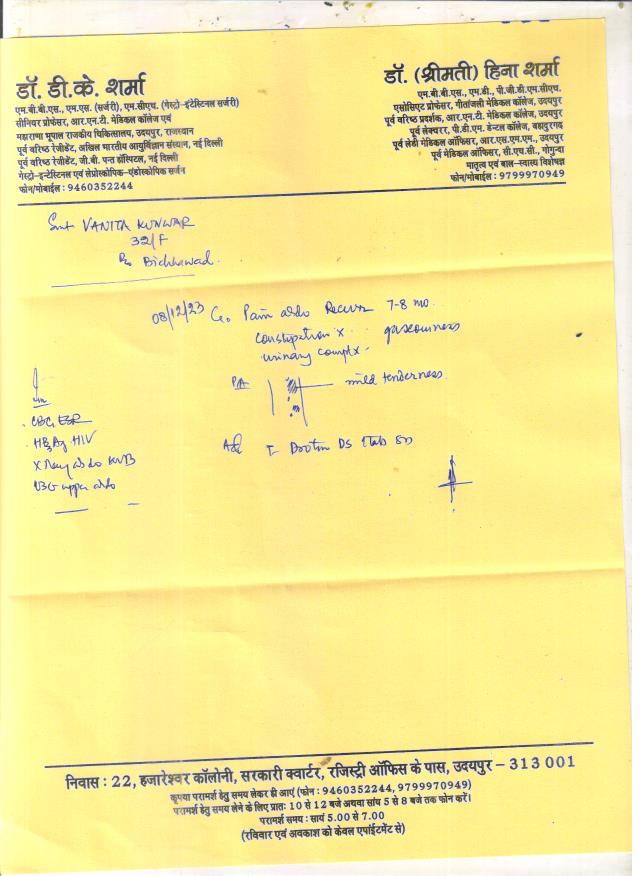 डॉ. डी.के. शर्मा
एम.बी.बी.एस., एम.एस. (सर्जरी), एम.सीएच. (गेस्ट्रो-इंटेस्टिनल सर्जरी)
सीनियर प्रोफेसर, आर.एन.टी. मेडिकल कॉलेज एवं
महाराणा भूपाल राजकीय चिकित्सालय, उदयपुर, राजस्थान
पूर्व वरिष्ठ रेजीडेंट, अखिल भारतीय आयुर्विज्ञान संस्थान, नई दिल्ली
पूर्व वरिष्ठ रेजीडेंट, जी.बी. पन्त हॉस्पिटल, नई दिल्ली
गेस्ट्रो-इन्टेस्टिनल एवं लेप्रोस्कोपिक-एंडोस्कोपिक सर्जन
फोन/मोबाईल : 9460352244
डॉ. (श्रीमती) हिना शर्मा
एम.बी.बी.एस., एम.डी., पी.जी.डी.एम.सीएच.
एसोसिएट प्रोफेसर, गीतांजली मेडिकल कॉलेज, उदयपुर
पूर्व वरिष्ठ प्रदर्शक, आर.एन.टी. मेडिकल कॉलेज, उदयपुर
पूर्व लेक्चरर, पी.डी.एम. डेन्टल कॉलेज, बहादुरगढ़
पूर्व लेडी मेडिकल ऑफिसर, आर.एस.एम.एम., उदयपुर
पूर्व मेडिकल ऑफिसर, सी.एच.सी., गोगुन्दा
मातृत्व एवं बाल-स्वास्थ्य विशेषज्ञ
फोन/मोबाईल : 9799970949
Smt VANITA KUNWAR
32/F
Bichhawad.
08/12/23 C/o Pain abdo Recurr 7-8 mo.
Constipation x gaseousness
urinary compl x
PA mild tenderness
CBC, ESR
HBsAg HIV
X Ray abdo KUB
USG upper abdo
Adv T- DS 1 tab
निवास : 22, हजारेश्वर कॉलोनी, सरकारी क्वार्टर, रजिस्ट्री ऑफिस के पास, उदयपुर – 313 001
कृपया परामर्श हेतु समय लेकर ही आएं (फोन : 9460352244, 9799970949)
परामर्श हेतु समय लेने के लिए प्रातः 10 से 12 बजे अथवा सांय 5 से 8 बजे तक फोन करें।
परामर्श समय : सायं 5.00 से 7.00
(रविवार एवं अवकाश को केवल एपॉईंटमेंट से)